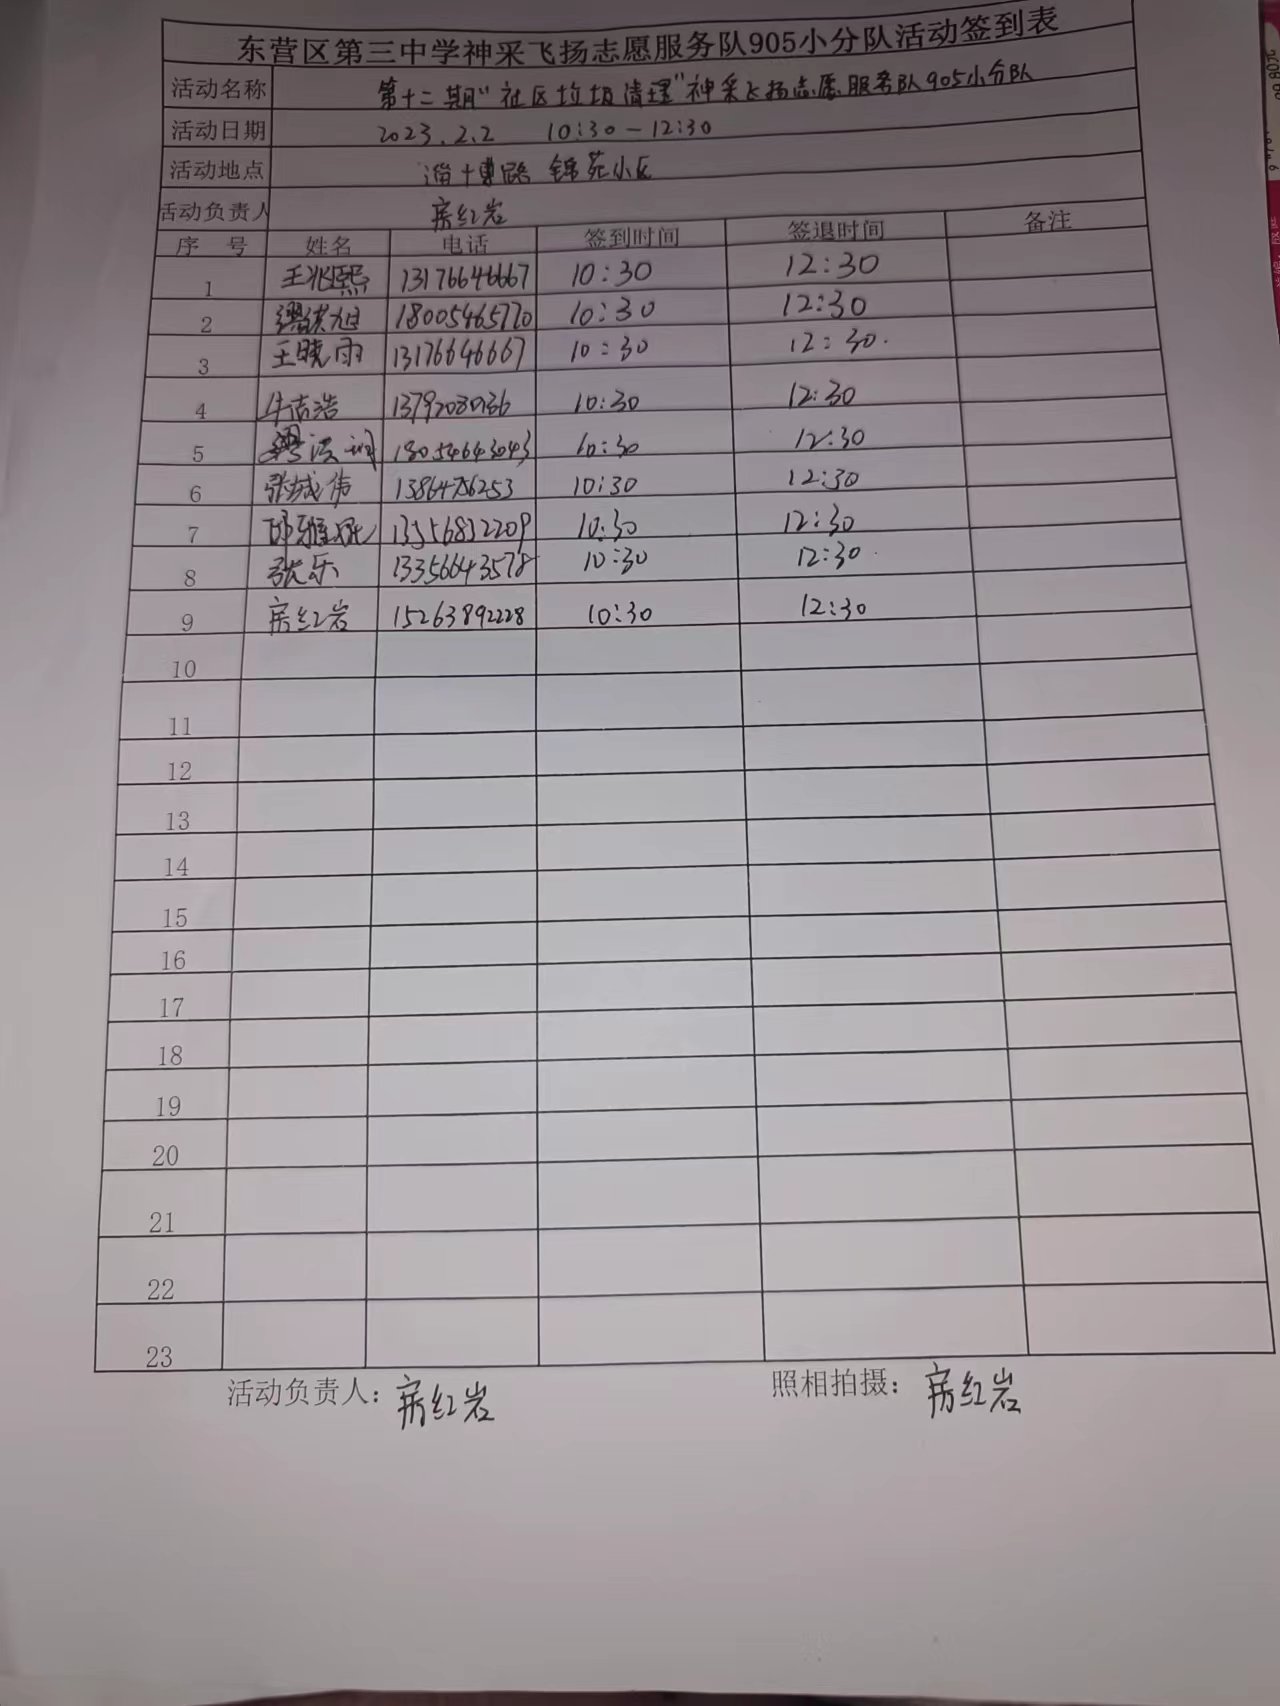 东营区第三中学神采飞扬志愿服务队905小分队活动签到表
活动名称 第十二期"社区垃圾清理"神采飞扬志愿服务队905小分队
活动日期 2023.2.2 10:30-12:30
活动地点 淄博路 锦苑小区
活动负责人 房红岩
序号 姓名 电话 签到时间 签退时间 备注
1 王兆熙 13176646667 10:30 12:30
2 18005465770 10:30 12:30
3 王晓雨 13176646667 10:30 12:30
4 牛志浩 10:30 12:30
5 18054643043 10:30 12:30
6 张城伟 10:30 12:30
7 10:30 12:30
8 张乐 13356643578 10:30 12:30
9 房红岩 15263892228 10:30 12:30
10
11
12
13
14
15
16
17
18
19
20
21
22
23
活动负责人：房红岩 照相拍摄：房红岩